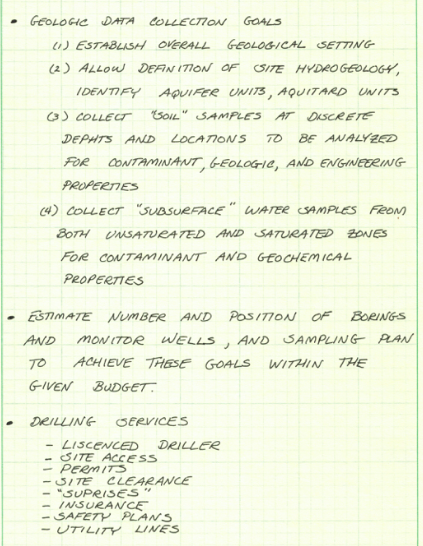 • GEOLOGIC DATA COLLECTION GOALS
(1) ESTABLISH OVERALL GEOLOGICAL SETTING
(2) ALLOW DEFINITION OF SITE HYDROGEOLOGY,
IDENTIFY AQUIFER UNITS, AQUITARD UNITS
(3) COLLECT "SOIL" SAMPLES AT DISCRETE
DEPHTS AND LOCATIONS TO BE ANALYZED
FOR CONTAMINANT, GEOLOGIC, AND ENGINEERING
PROPERTIES
(4) COLLECT "SUBSURFACE" WATER SAMPLES FROM
BOTH UNSATURATED AND SATURATED ZONES
FOR CONTAMINANT AND GEOCHEMICAL
PROPERTIES
• ESTIMATE NUMBER AND POSITION OF BORINGS
AND MONITOR WELLS, AND SAMPLING PLAN
TO ACHIEVE THESE GOALS WITHIN THE
GIVEN BUDGET.
• DRILLING SERVICES
- LISCENCED DRILLER
- SITE ACCESS
- PERMITS
- SITE CLEARANCE
- "SUPRISES"
- INSURANCE
- SAFETY PLANS
- UTILITY LINES